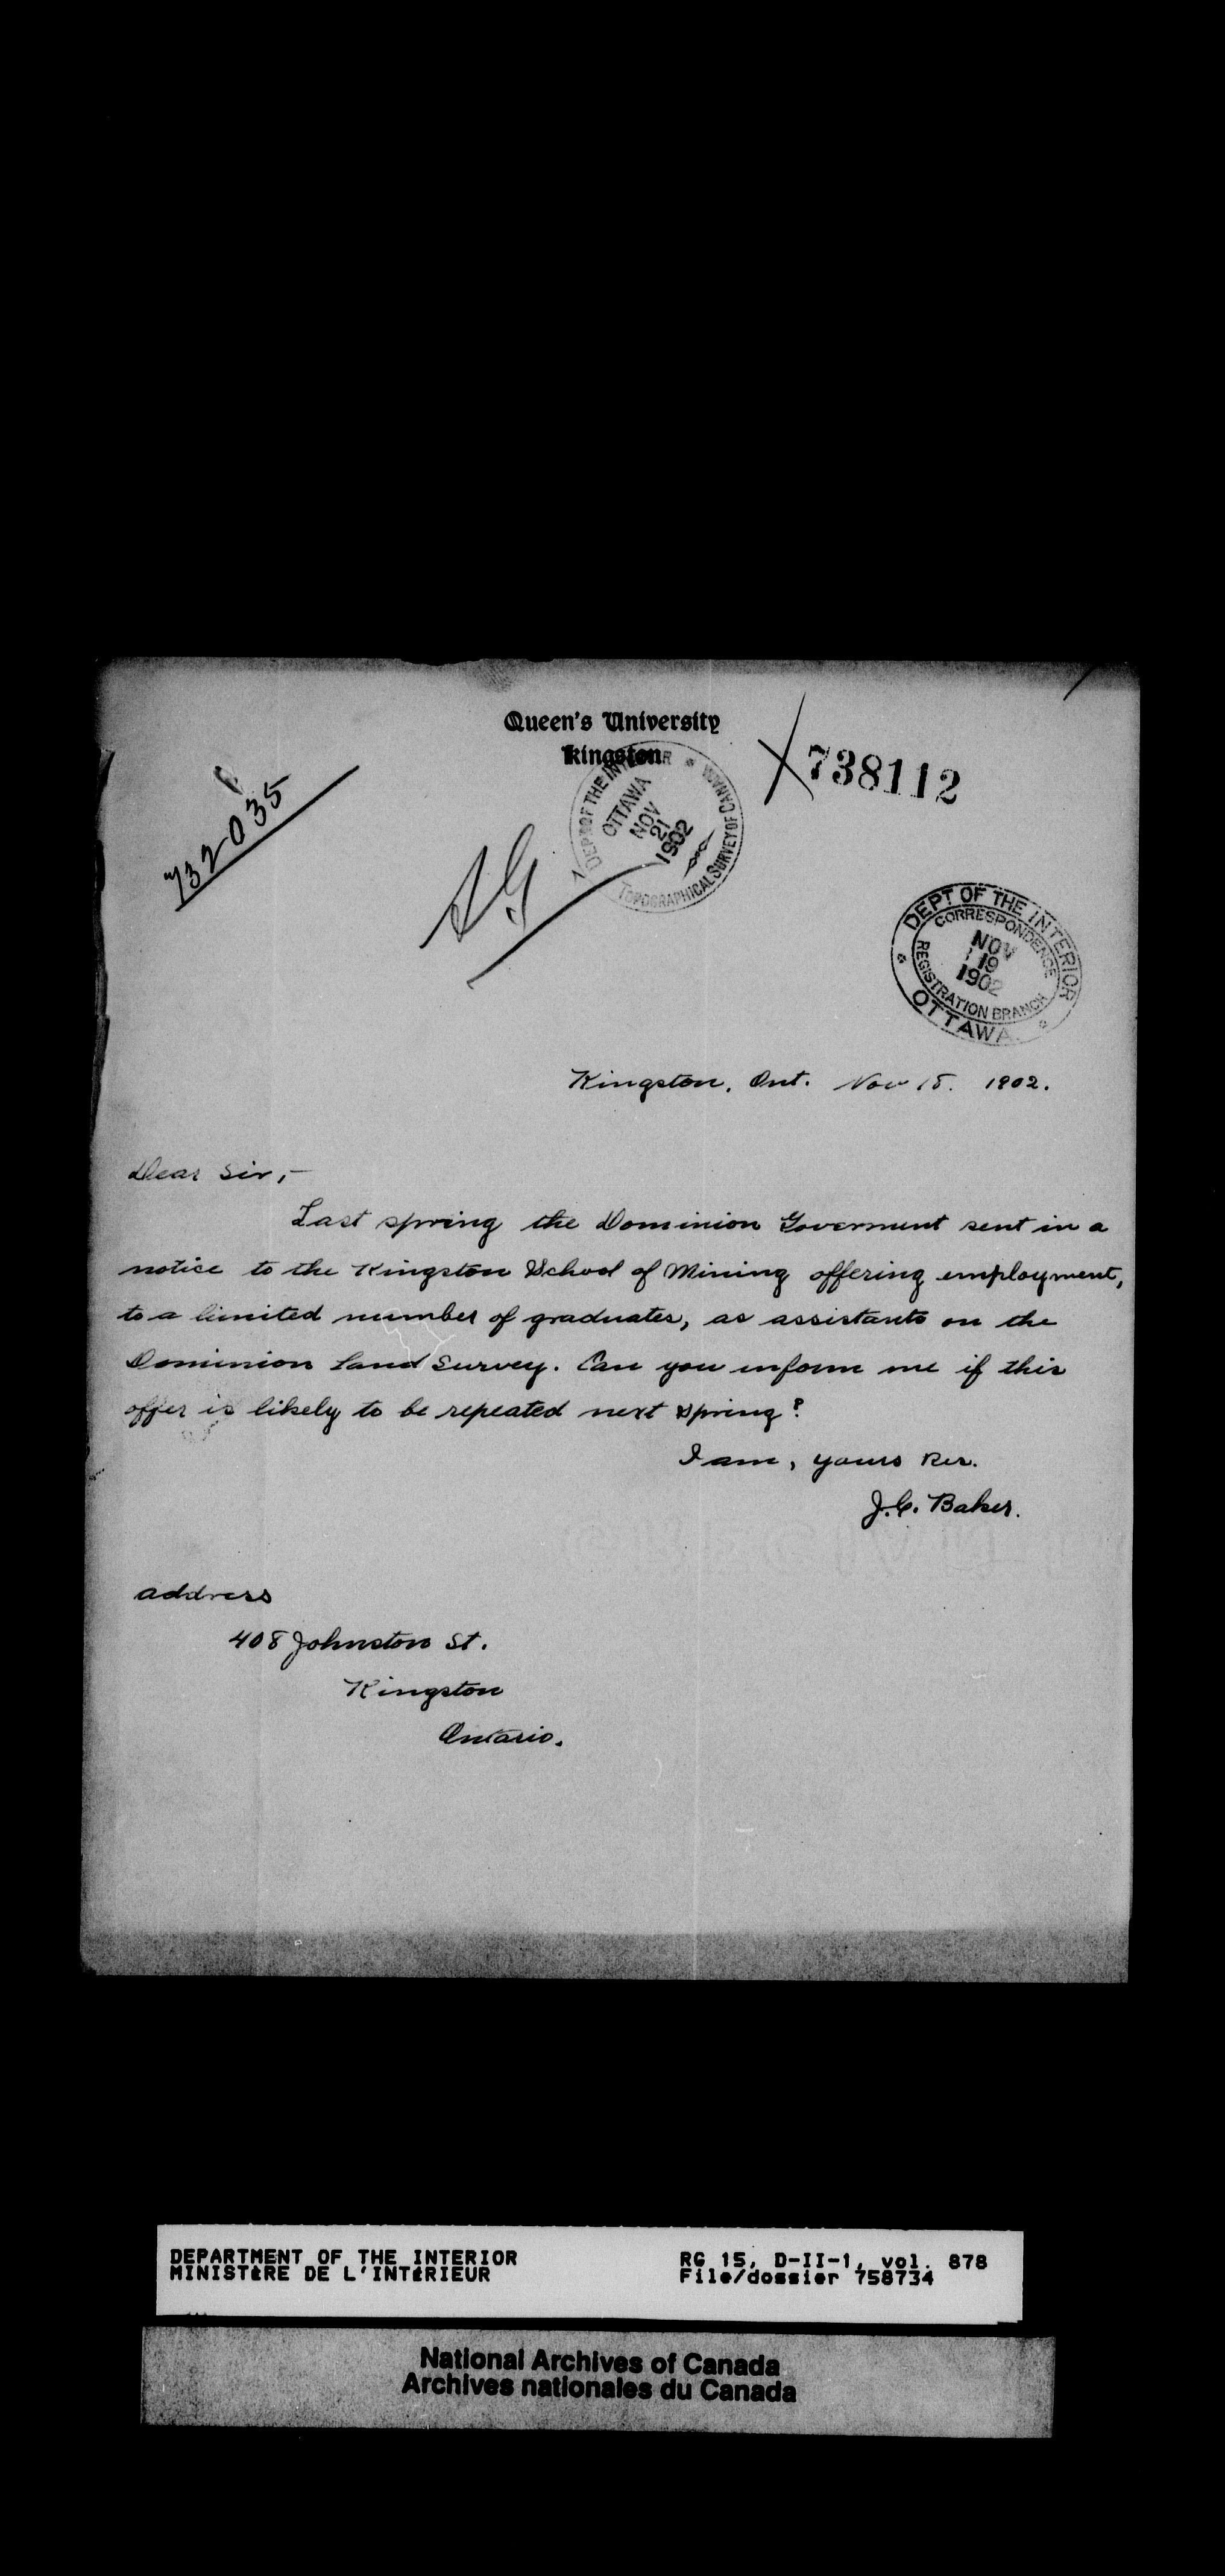 Queen's University
Kingston
738112
732035
SG
DEPT OF THE INTERIOR
OTTAWA
NOV
21
1902
TOPOGRAPHICAL SURVEY OF CANADA
DEPT OF THE INTERIOR
CORRESPONDENCE
NOV
19
1902
REGISTRATION BRANCH
OTTAWA
Kingston, Ont. Nov 18. 1902.
Dear Sir,-
Last spring the Dominion Goverment sent in a
notice to the Kingston School of Mining offering employment,
to a limited number of graduates, as assistants on the
Dominion Land Survey. Can you inform me if this
offer is likely to be repeated next spring?
I am, yours Res.
J.C. Baker.
address
408 Johnston St.
Kingston
Ontario.
DEPARTMENT OF THE INTERIOR
MINISTÈRE DE L'INTÉRIEUR
RG 15, D-II-1, vol. 878
File/dossier 758734
National Archives of Canada
Archives nationales du Canada